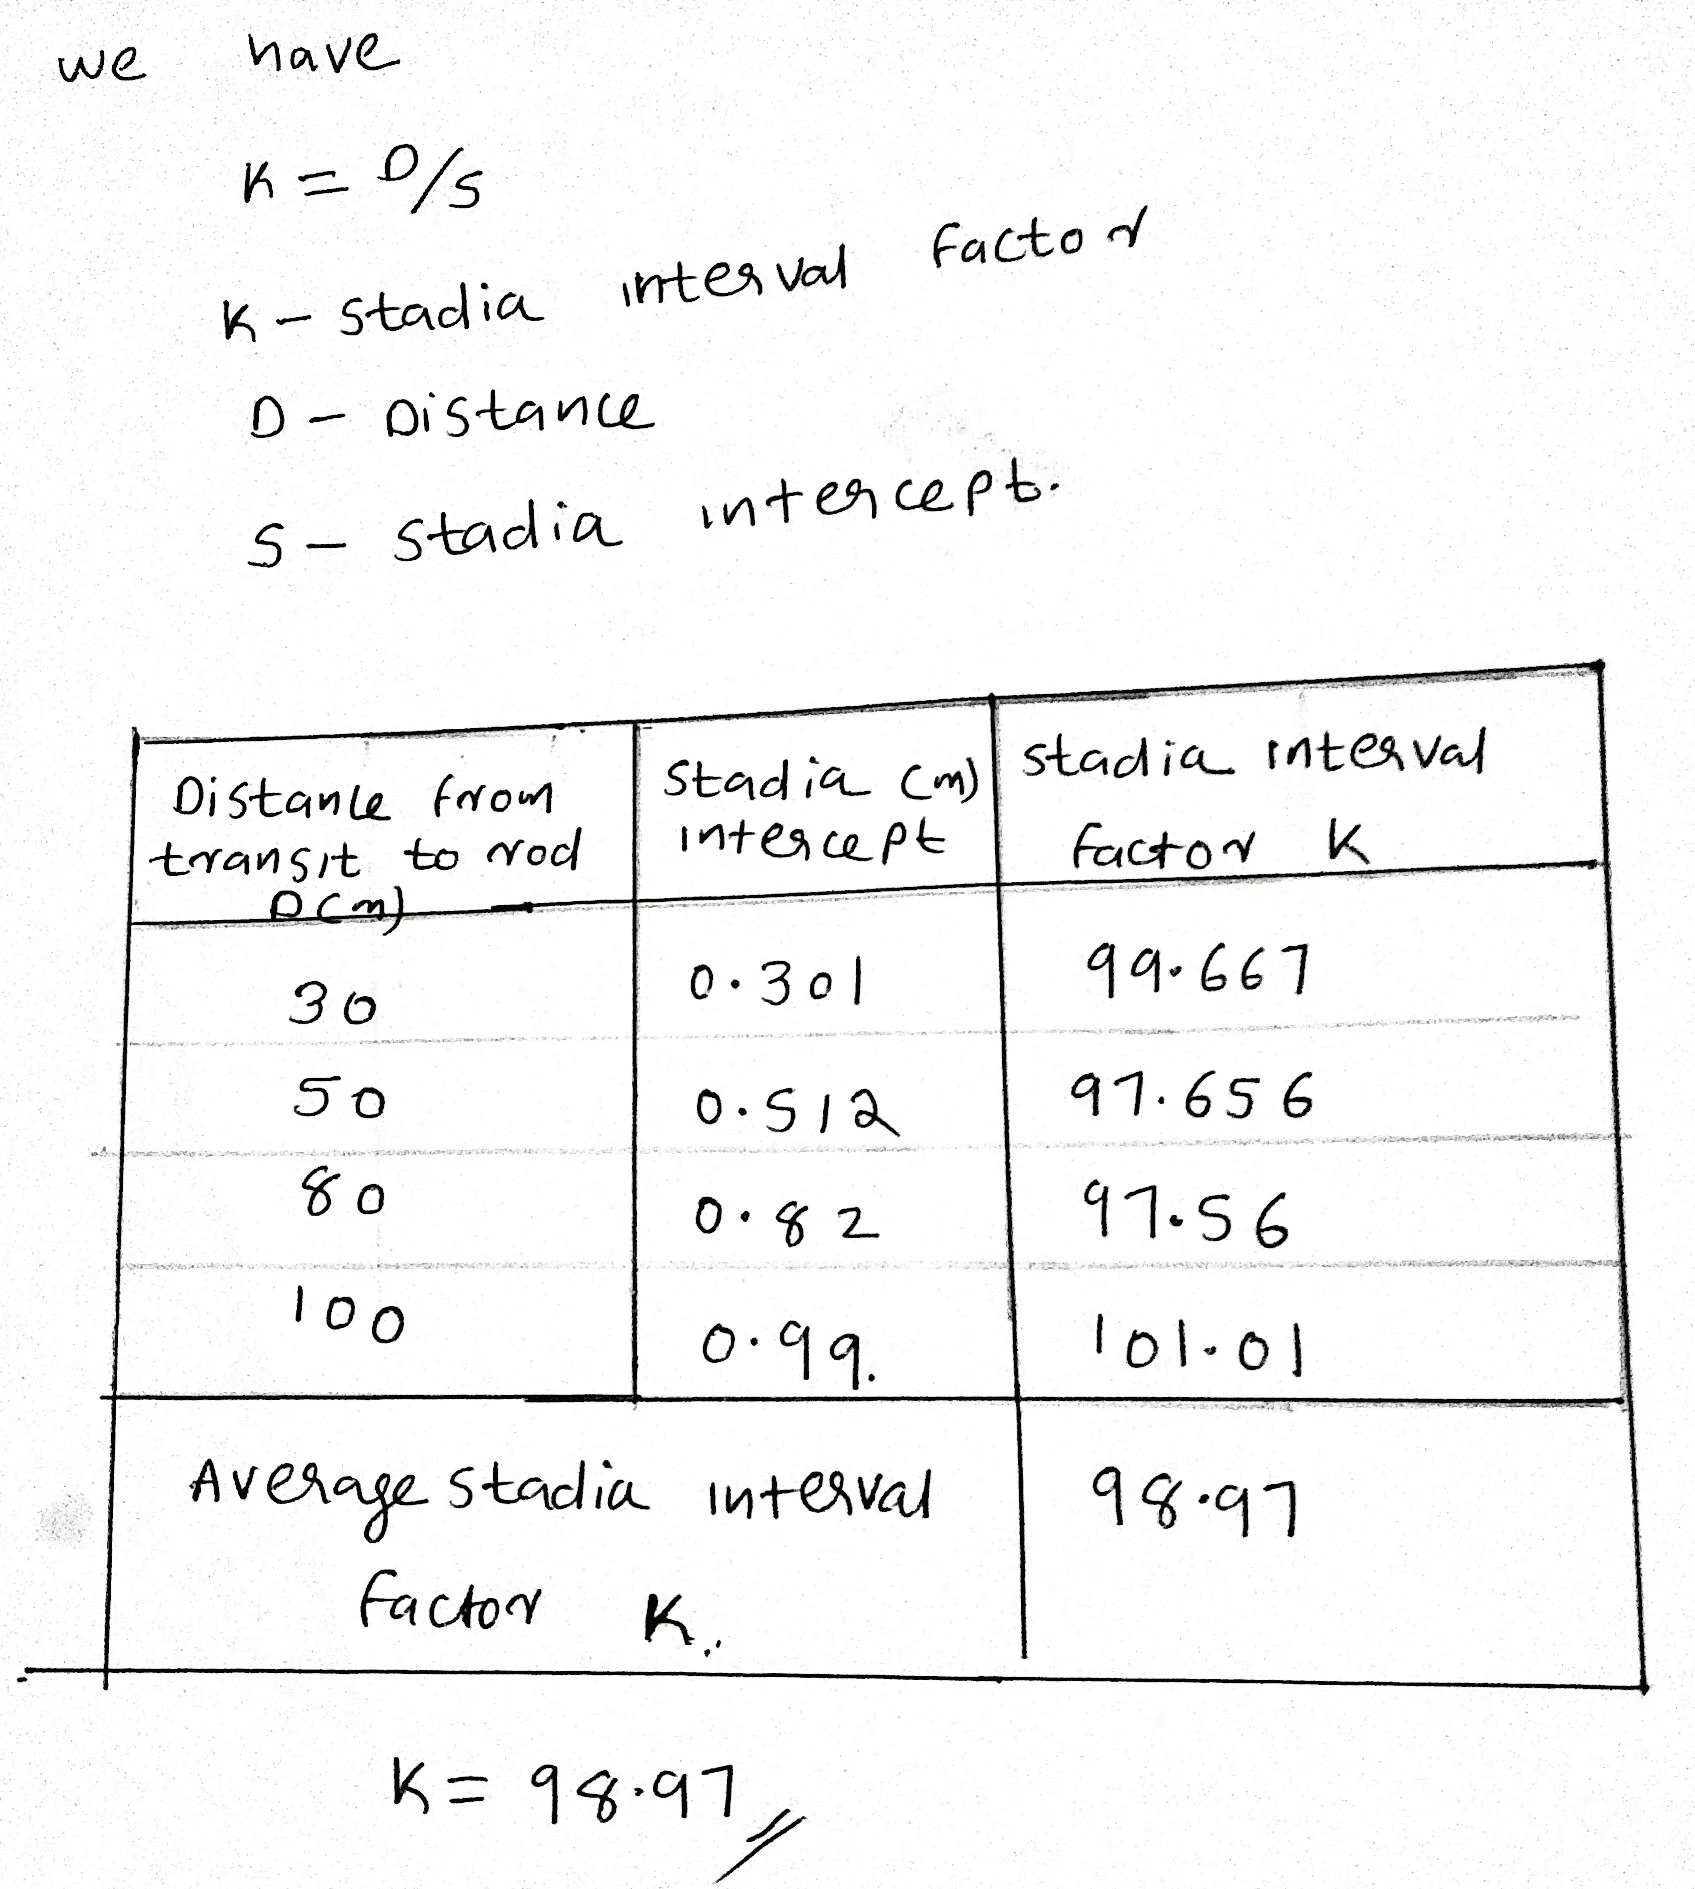 we have
K = D/S
K - Stadia interval factor
D - Distance
S - Stadia intercept.
Distance from transit to rod D(m) | Stadia (m) intercept | Stadia interval factor K
30 | 0.301 | 99.667
50 | 0.512 | 97.656
80 | 0.82 | 97.56
100 | 0.99. | 101.01
Average stadia interval factor K. | 98.97
K = 98.97